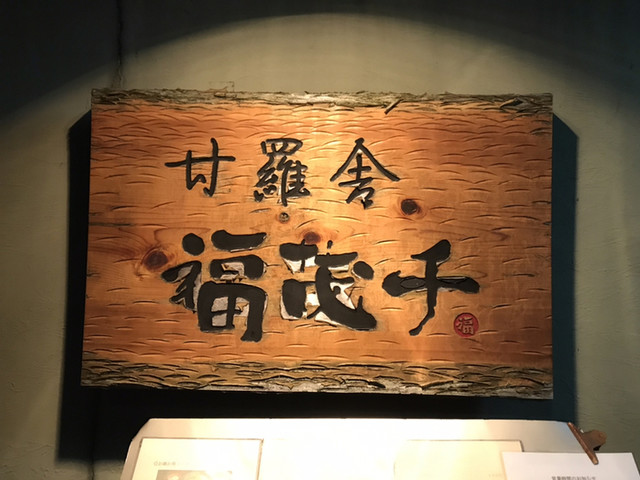 甘羅舎
福茂千
福